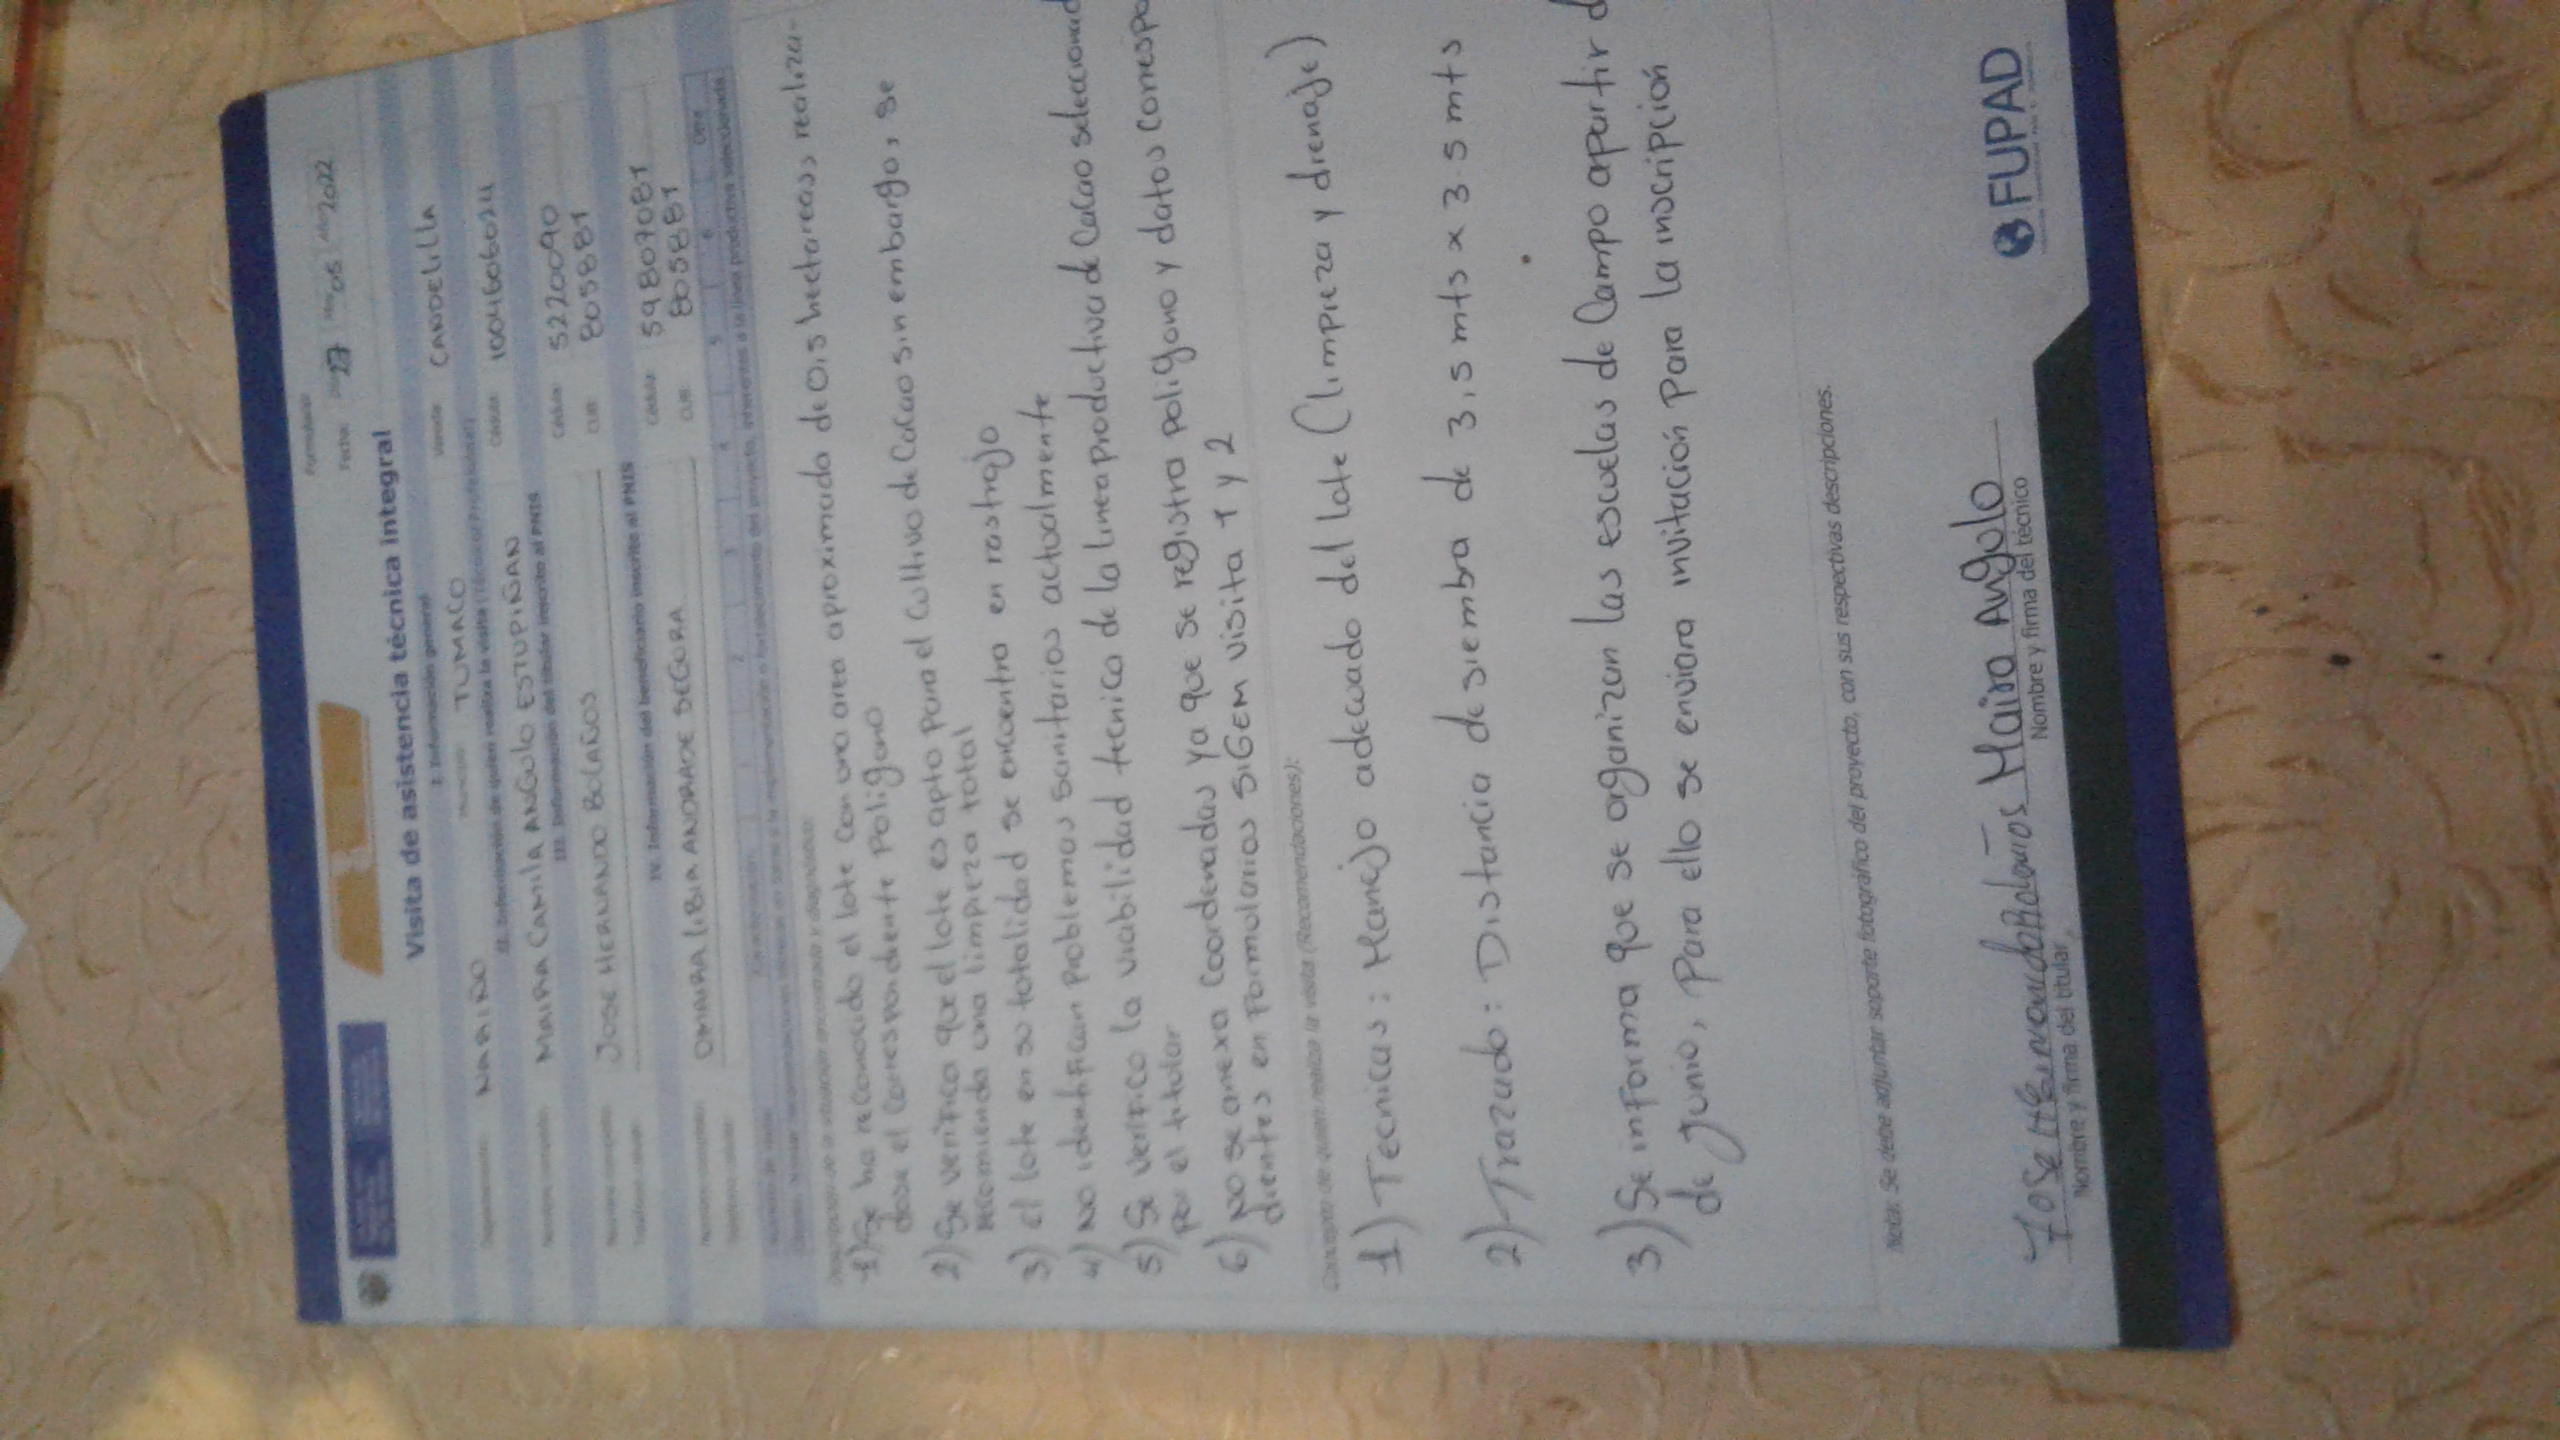 Formulario
Fecha: 27 05 2022
Visita de asistencia técnica integral
I. Información general
NARIÑO Municipio: TUMACO Vereda: CANDELILLA
II. Información de quien realiza la visita (Técnico o Profesional)
Nombre completo: MAIRA CAMILA ANGULO ESTUPIÑAN Cédula: 1004606024
III. Información del titular inscrito al PNIS
Nombre completo: JOSE HERNANDO BOLAÑOS Cédula: 5220090
CUB: 805881
IV. Información del beneficiario inscrito al PNIS
Nombre completo: OMAIRA LIBIA ANDRADE SEGURA Cédula: 59807081
CUB: 805881
1 2 3 4 5 6 Otra
1) Se ha reconocido el lote con una area aproximada de 0,5 hectareas, realizan-
dose el correspondiente Poligono
2) Se verifica que el lote es apto para el cultivo de Cacao sin embargo, se
recomienda una limpieza total
3) el lote en su totalidad se encuentra en rastrojo
4) No identifican Problemas Sanitarios actualmente
5) Se verifico la viabilidad tecnica de la linea productiva de Cacao seleccionad
por el titular
6) No se anexa Coordenadas ya que se registra poligono y datos correspo
dientes en Formularios SIGEM visita 1 y 2
Concepto de quien realiza la visita (Recomendaciones):
1) Tecnicas: Manejo adecuado del lote (limpieza y drenaje)
2) Trazado: Distancia de siembra de 3,5 mts x 3.5 mts
3) Se informa que se organizan las escuelas de Campo apartir d
de Junio, Para ello se enviara invitación Para la inscripción
Nota: Se debe adjuntar soporte fotográfico del proyecto, con sus respectivas descripciones.
Jose Hernando Bolaños Maira Angulo
Nombre y firma del titular Nombre y firma del técnico
FUPAD